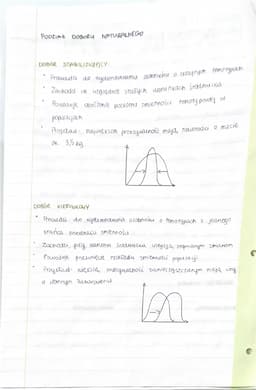 RODZAJE DOBORU NATURALNEGO
DOBÓR STABILIZUJĄCY:
Prowadzi do wyeliminowania osobników o skrajnych fenotypach
Zachodzi w względnie stałych warunkach środowiska
Powoduje obniżenie poziomu zmienności fenotypowej w
populacjach
Przykład: największą przeżywalność mają noworodki o masie
ok. 3,5 kg
DOBÓR KIERUNKOWY
Prowadzi do wyeliminowania osobników o fenotypach z jednego
krańca zmienności
Zachodzi, gdy warunki środowiska ulegają zmianom
Powoduje przesunięcie rozkładu zmienności populacji
Przykład: większą mają
o ciemnym zabarwieniu